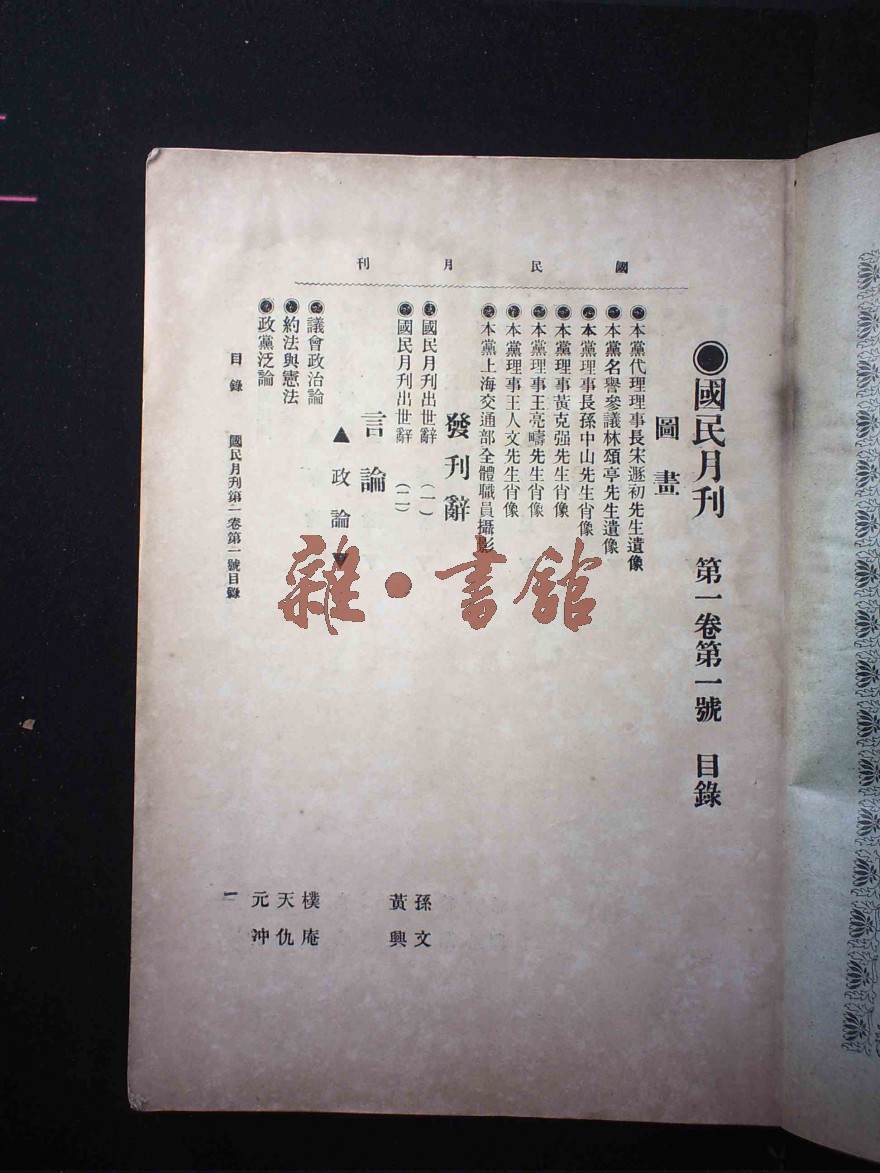 國民月刊
●國民月刊 第一卷第一號 目錄
圖畫
●本黨代理理事長宋遯初先生遺像
●本黨名譽參議林頌亭先生遺像
●本黨理事長孫中山先生肖像
●本黨理事黃克强先生肖像
●本黨理事王亮疇先生肖像
●本黨理事王人文先生肖像
●本黨上海交通部全體職員攝影
發刊辭
●國民月刊出世辭(一) 孫文
●國民月刊出世辭(二) 黃興
言論
▲政論▼
●議會政治論 樸庵
●約法與憲法 天仇
●政黨泛論 元冲
目錄 國民月刊第一卷第一號目錄 一
雜·書館